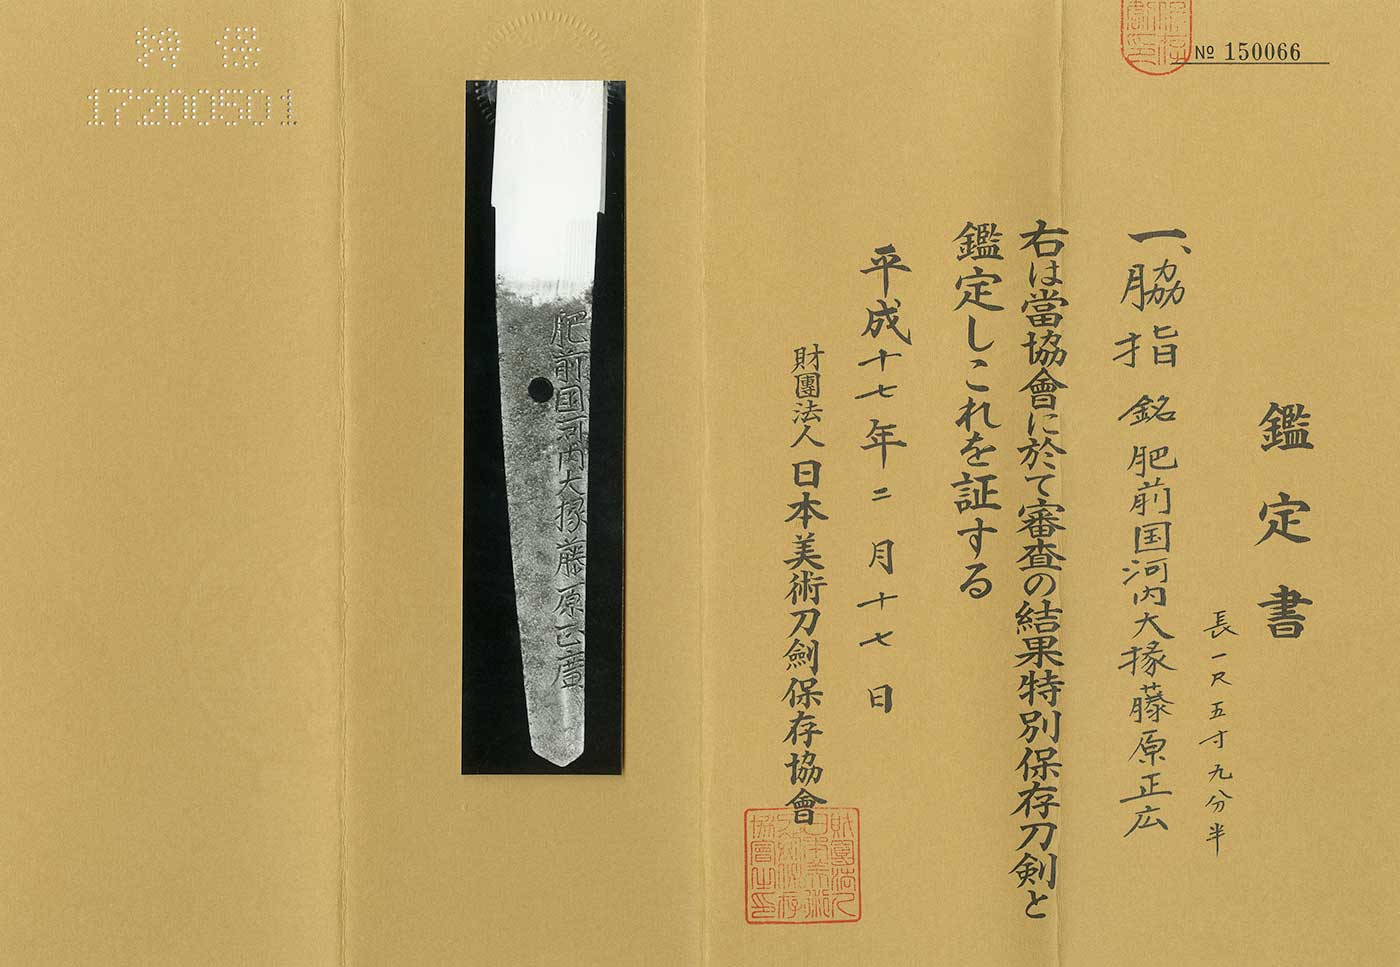 № 150066
鑑定書
長一尺五寸九分半
一、脇指 銘 肥前国河内大掾藤原正広
右は當協會に於て審査の結果特別保存刀剣と
鑑定しこれを証する
平成十七年二月十七日
財團法人日本美術刀劍保存協會
肥前国河内大掾藤原正廣
特保
17200501